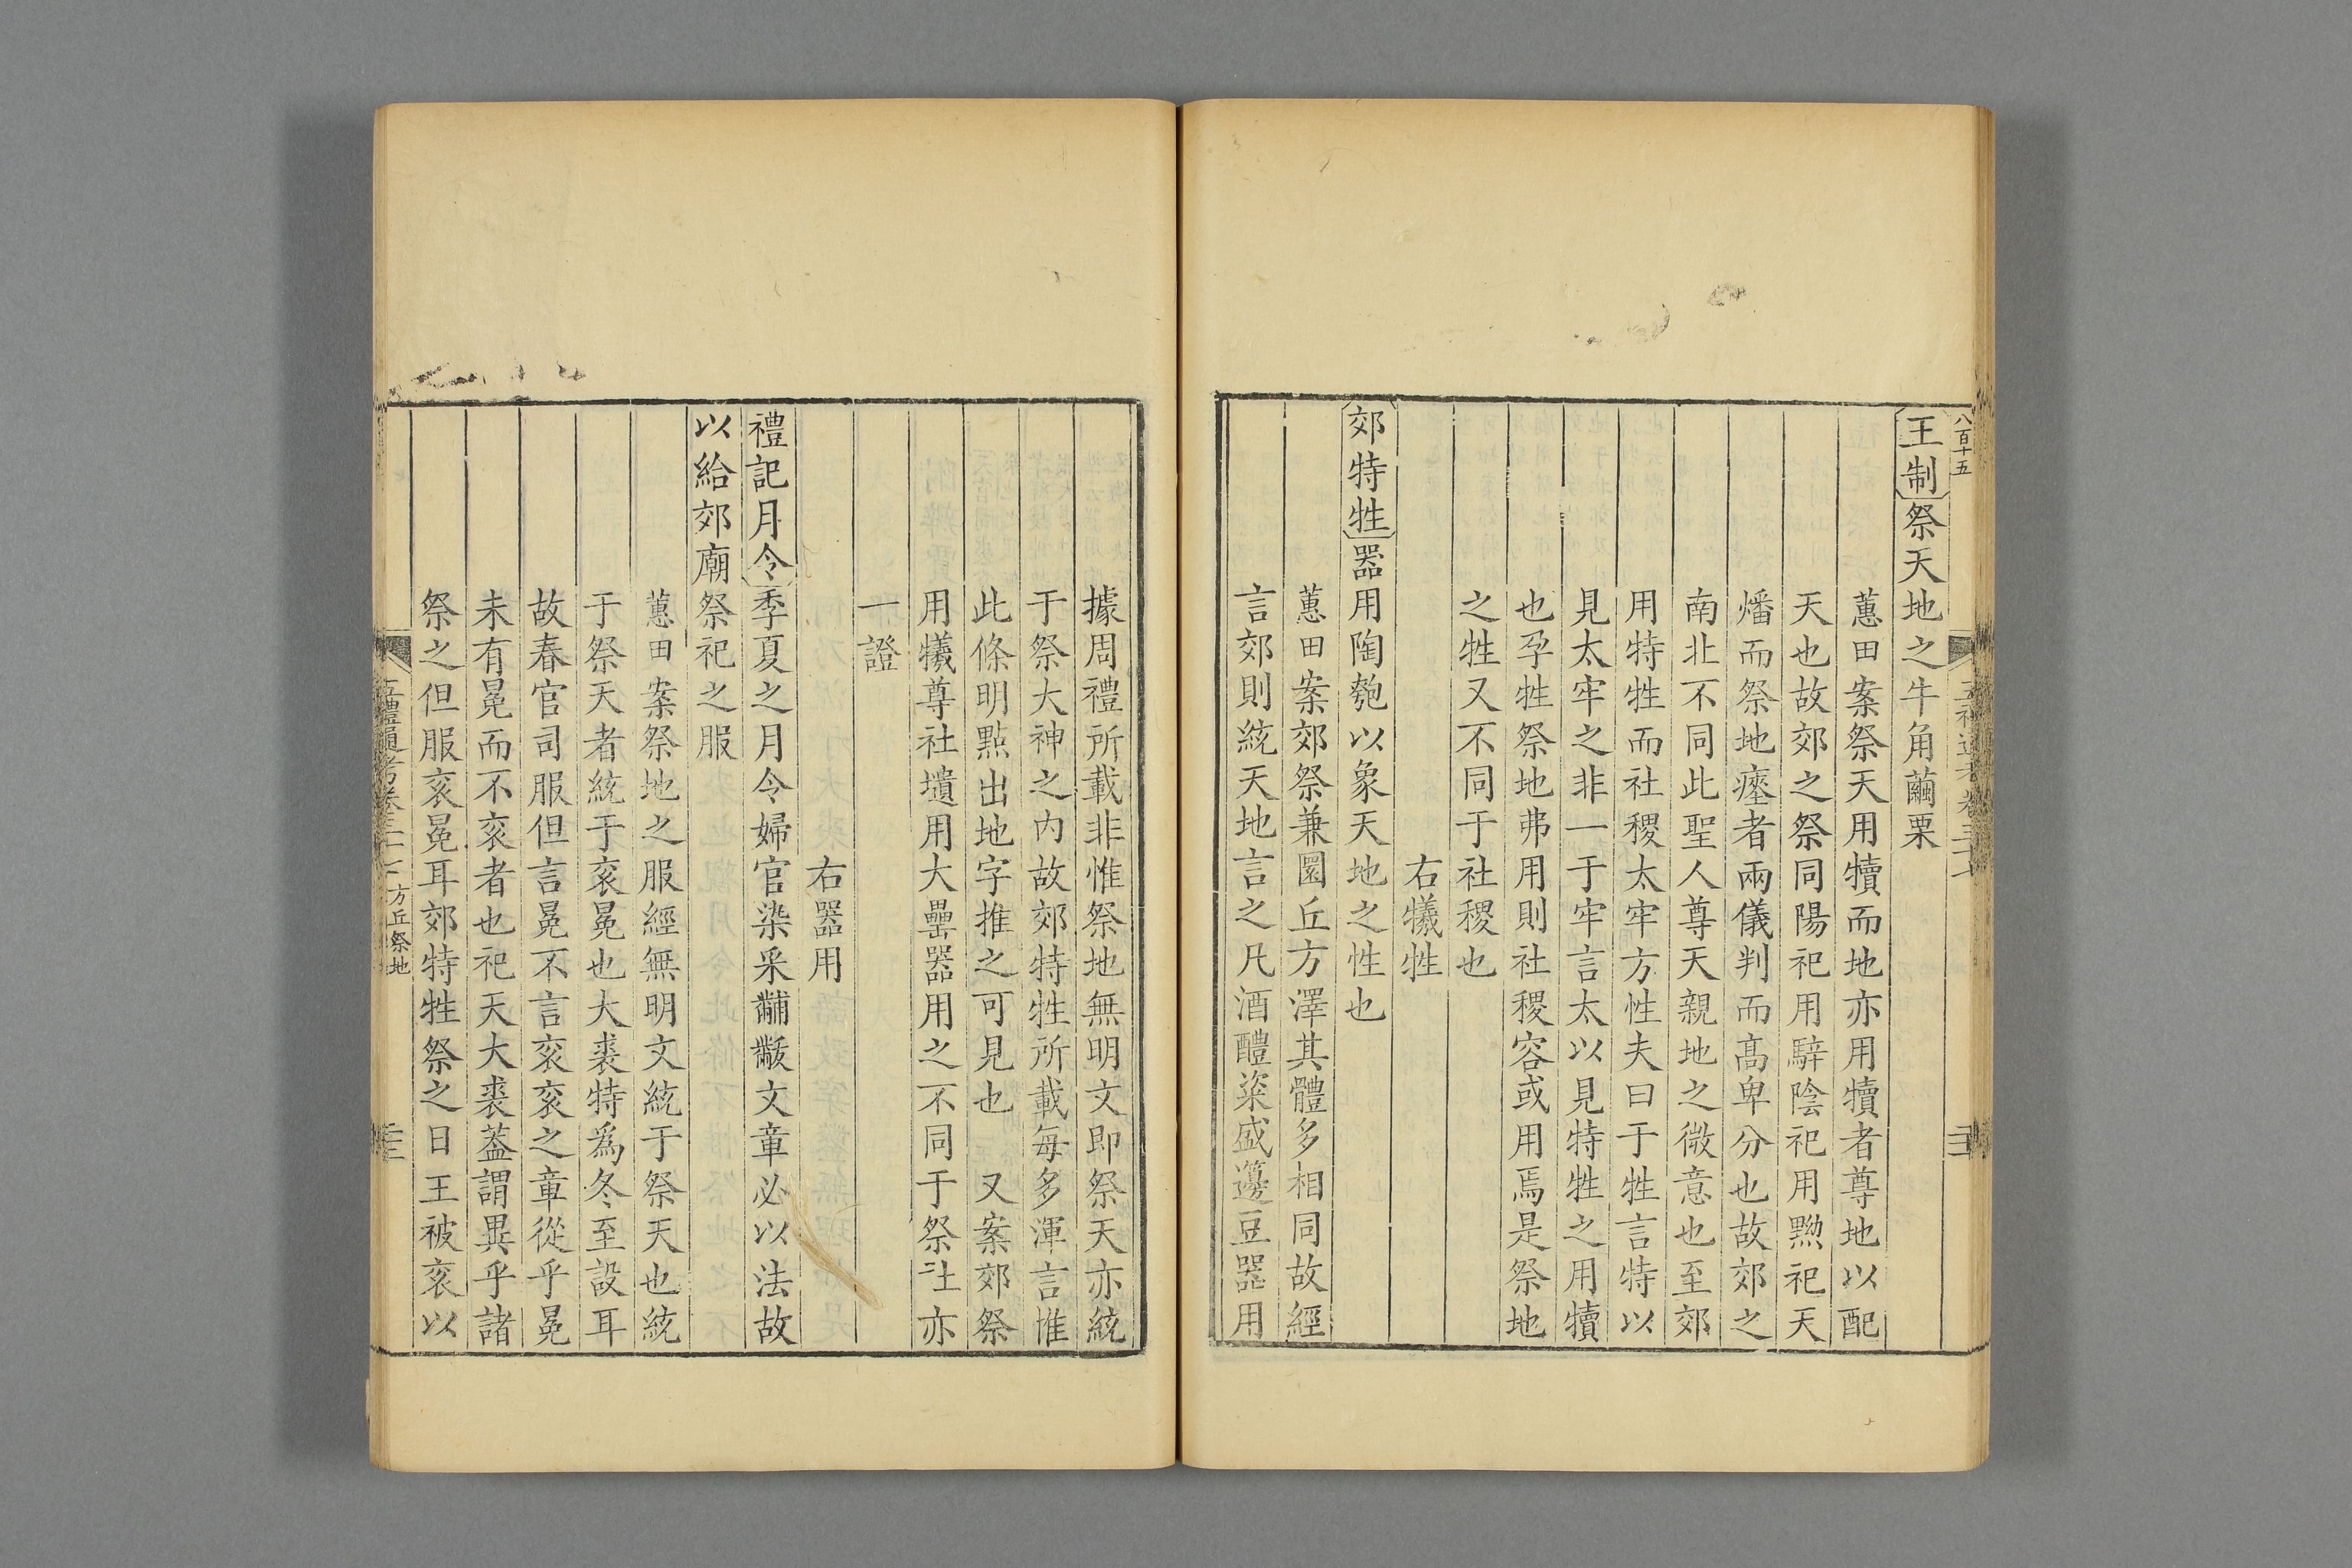 八百十五
王制祭天地之牛角繭栗
蕙田案祭天用犢而地亦用犢者尊地以配
天也故郊之祭同陽祀用騂陰祀用黝祀天
燔而祭地瘞者兩儀判而髙卑分也故郊之
南北不同此聖人尊天親地之微意也至郊
用特牲而社稷太牢方性夫曰于牲言特以
見太牢之非一于牢言太以見特牲之用犢
也孕牲祭地弗用則社稷容或用焉是祭地
之牲又不同于社稷也
右犧牲
郊特牲器用陶匏以象天地之性也
蕙田案郊祭兼圜丘方澤其體多相同故經
言郊則統天地言之凡酒醴粢盛籩豆器用
據周禮所載非惟祭地無明文即祭天亦統
于祭大神之内故郊特牲所載每多渾言惟
此條明點出地字推之可見也 又案郊祭
用犧尊社壝用大罍器用之不同于祭社亦
一證
右器用
禮記月令季夏之月令婦官染采黼黻文章必以法故
以給郊廟祭祀之服
蕙田案祭地之服經無明文統于祭天也統
于祭天者統于衮冕也大裘特爲冬至設耳
故春官司服但言冕不言衮衮之章從乎冕
未有冕而不衮者也祀天大裘葢謂異乎諸
祭之但服衮冕耳郊特牲祭之日王被衮以
五禮通考卷三十七 方丘祭地